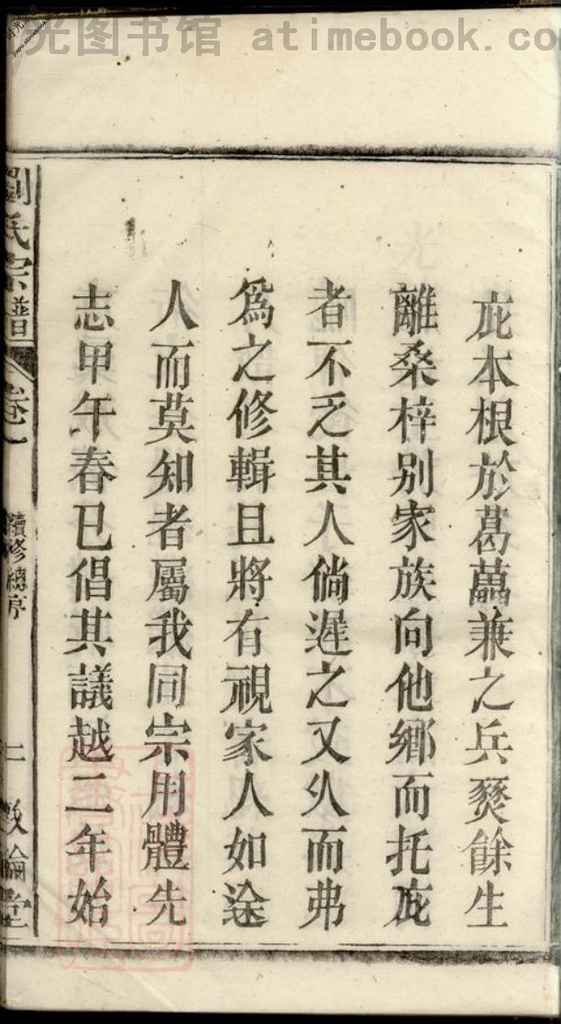 光图书馆 atimebook.co
庇本根於葛藟兼之兵燹餘生
離桑梓别家族向他鄉而托庇
者不乏其人倘遲之又久而弗
為之修輯且將有視家人如途
人而莫知者屬我同宗用體先
志甲午春已倡其議越二年始
劉氏宗譜
卷一
續修總序
二
敦倫堂